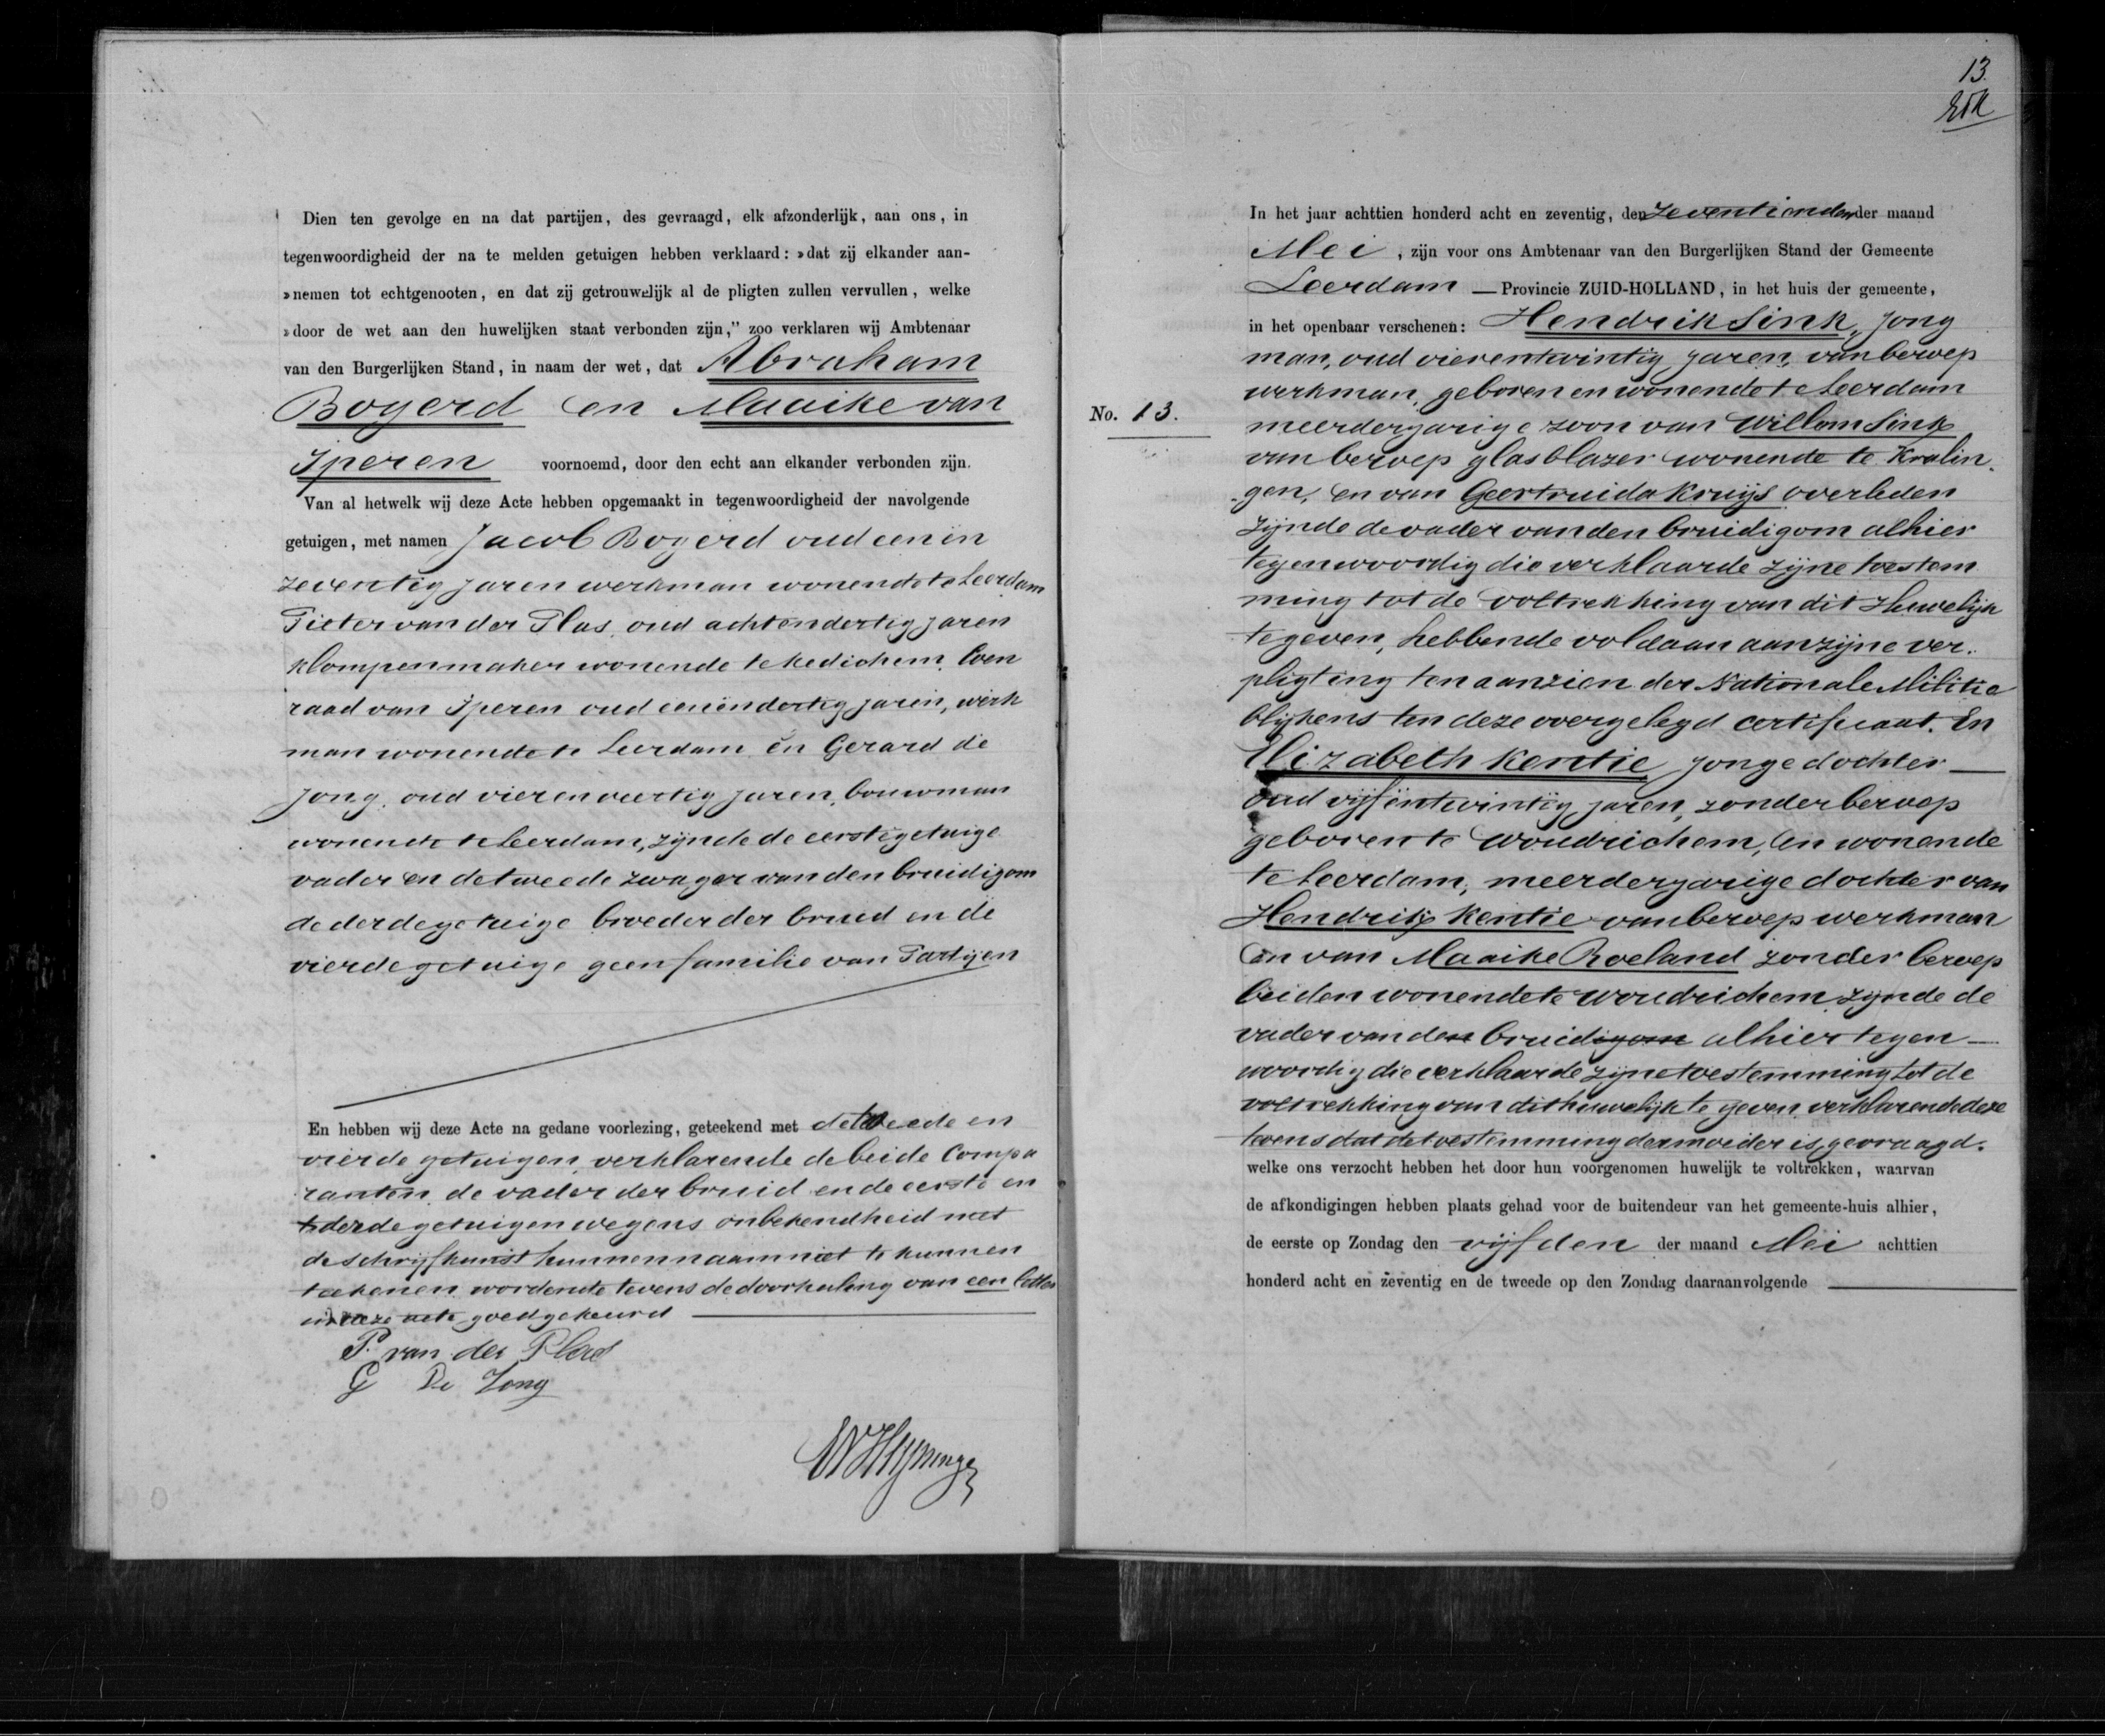 Dien ten gevolge en na dat partijen, des gevraagd, elk afzonderlijk, aan ons, in
tegenwoordigheid der na te melden getuigen hebben verklaard: »dat zij elkander aan-
»nemen tot echtgenooten, en dat zij getrouwelijk al de pligten zullen vervullen, welke
»door de wet aan den huwelijken staat verbonden zijn,” zoo verklaren wij Ambtenaar
van den Burgerlijken Stand, in naam der wet, dat Abraham
Bogerd en Maaike van
Iperen voornoemd, door den echt aan elkander verbonden zijn.
Van al hetwelk wij deze Acte hebben opgemaakt in tegenwoordigheid der navolgende
getuigen, met namen Jacob Bogerd oud een en
zeventig jaren werkman wonende te Leerdam
Pieter van der Plas, oud achtendertig jaren
klompenmaker wonende te Kedichem, Coen
raad van Iperen oud eenendertig jaren, werk
man wonende te Leerdam en Gerard de
Jong, oud vierenveertig jaren, bouwman
wonende te Leerdam, zijnde de eerste getuige
vader en de tweede zwager van den bruidigom
de derde getuige broeder der bruid en de
vierde getuige geen familie van Partijen
En hebben wij deze Acte na gedane voorlezing, geteekend met de tweede en
vierde getuigen, verklarende de beide Compa
ranten de vader der bruid en de eerste en
derde getuigen wegens onbekendheid met
de schrijfkunst hunnen naam niet te kunnen
teekenen wordende tevens de doorhaling van een letter
in deze acte goedgekeurd
P. van der Plas
G De Jong
13.
In het jaar achttien honderd acht en zeventig, den zeventienden der maand
Mei, zijn voor ons Ambtenaar van den Burgerlijken Stand der Gemeente
Leerdam — Provincie ZUID-HOLLAND, in het huis der gemeente,
in het openbaar verschenen: Hendrik Sink, Jong
man, oud vierentwintig jaren, van beroep
werkman, geboren en wonende te Leerdam
No. 13.
meerderjarige zoon van Willem Sink
van beroep glasblazer wonende te Kralin-
gen, en van Geertruida Kruijs overleden
zijnde de vader van den bruidigom alhier
tegenwoordig die verklaarde zijne toestem
ming tot de voltrekking van dit Huwelijk
te geven, hebbende voldaan aan zijne ver-
pligting ten aanzien der Nationale Militie
blijkens ten deze overgelegd certificaat. En
Elizabeth Kentie, jonge dochter
oud vijfentwintig jaren, zonder beroep
geboren te Woudrichem, en wonende
te Leerdam, meerderjarige dochter van
Hendrik Kentie van beroep werkman
en van Maaike Roeland zonder beroep
beiden wonende te Woudrichem zijnde de
vader van den bruidigom alhier tegen
woordig die verklaarde zijne toestemming tot de
voltrekking van dit huwelijk te geven verklarende deze
tevens dat de toestemming der moeder is gevraagd.
welke ons verzocht hebben het door hun voorgenomen huwelijk te voltrekken, waarvan
de afkondigingen hebben plaats gehad voor de buitendeur van het gemeente-huis alhier,
de eerste op Zondag den vijfden der maand Mei achttien
honderd acht en zeventig en de tweede op den Zondag daaraanvolgende